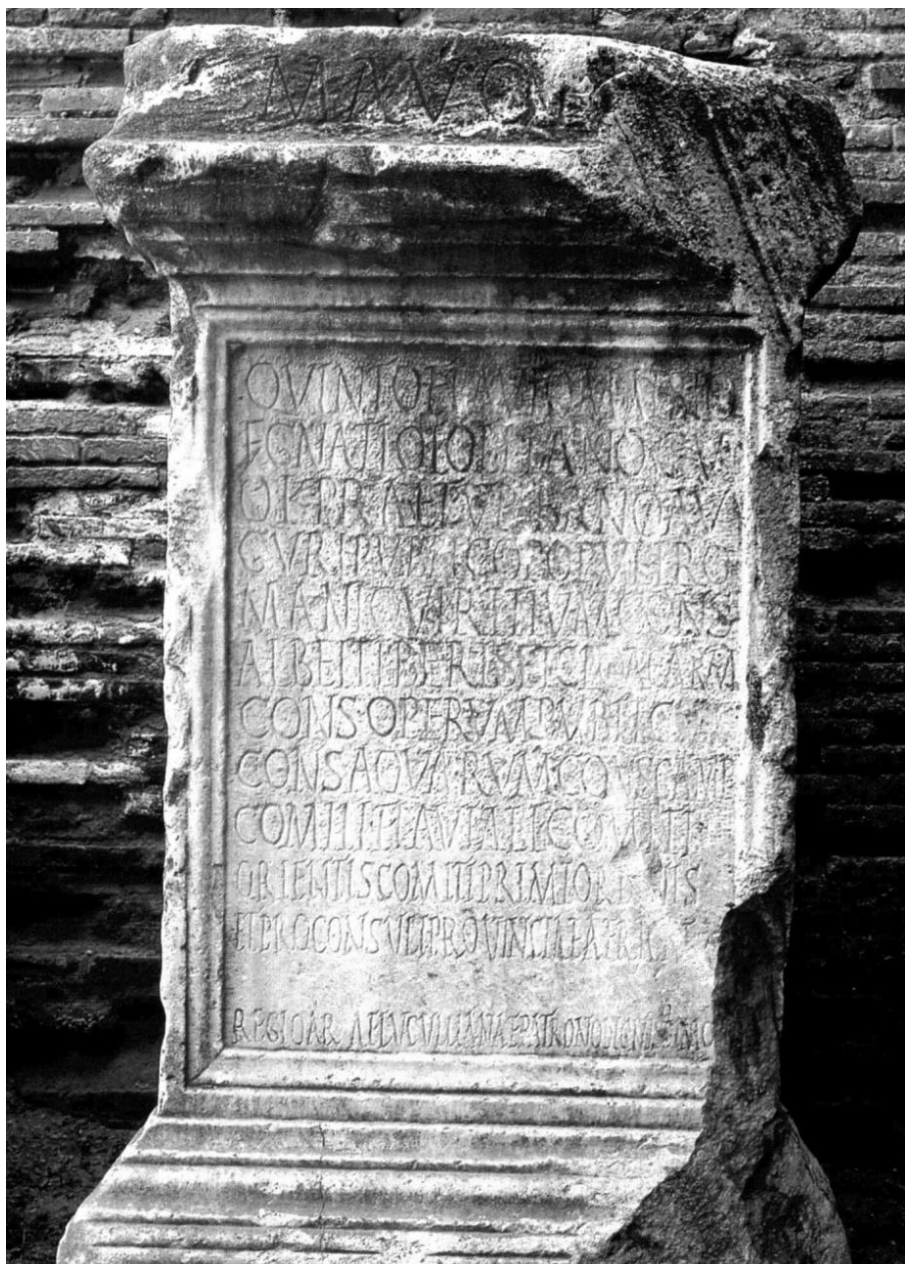 MAVO
QVINTO FL
EGNATIO LOLLIANO C V
Q K PRAET VRBANO AV
GVRI PVBLICO POPVLI RO
MANI QVIRITIVM CONS
ALBEI TIBERIS ET
CONS OPERVM PVBLIC
CONS AQVARVM CONS CAMP
COMITI FLAVIALI COMITI
ORIENTIS COMITI PRIMI ORDINIS
ET PROCONSVLI PROVINCIAE AFRICAE
REGIO ARAE LVCVLLIANAE PATRONO DIGNISSIMO